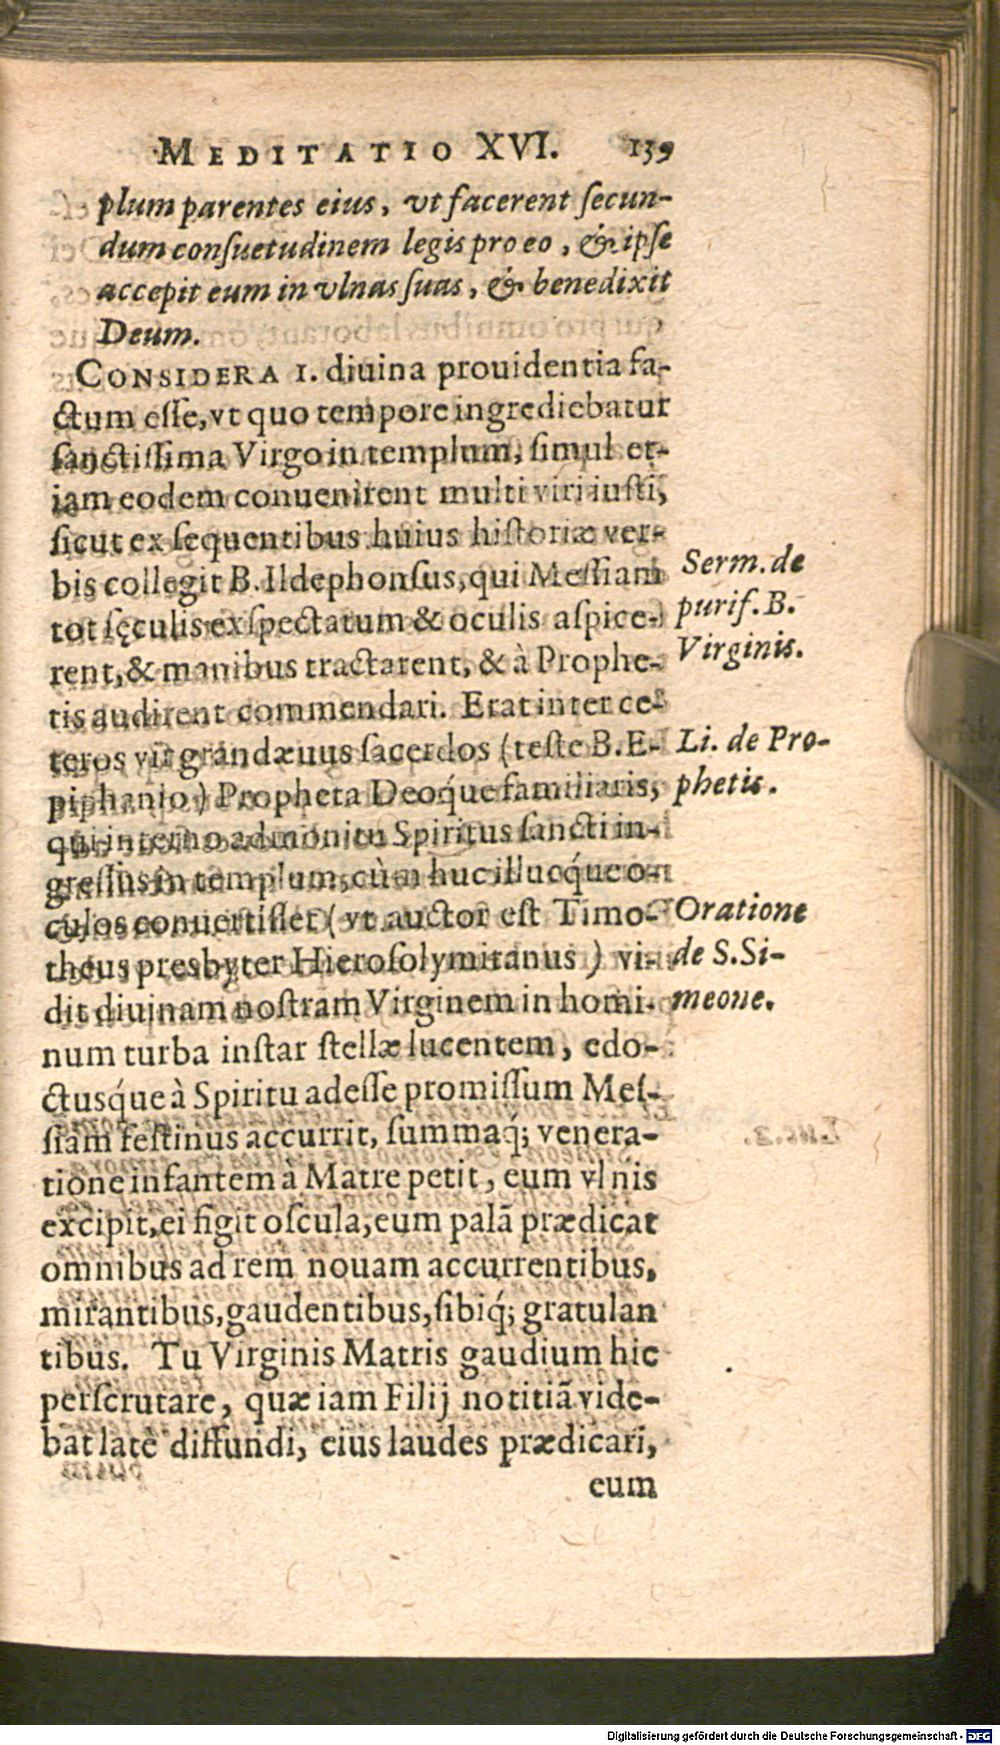 MEDITATIO XVI. 139
plum parentes eius, vt facerent ſecun-
dum conſuetudinem legis pro eo, & ipſe
accepit eum in vlnas ſuas, & benedixit
Deum.
CONSIDERA I. diuina prouidentia fa-
ctum eſſe, vt quo tempore ingrediebatur
ſanctiſſima Virgo in templum, ſimul et-
iam eodem conuenirent multi viri iuſti,
ſicut ex ſequentibus huius hiſtoriæ ver-
bis collegit B. Ildephonſus, qui Meſſiam
Serm. de
tot ſęculis exſpectatum & oculis aſpice-
purif. B.
rent, & manibus tractarent, & à Prophe-
Virginis.
tis audirent commendari. Erat inter ce-
teros vir grandæuus ſacerdos (teſte B. E-
Li. de Pro-
piphanio) Propheta Deoq́ue familiaris,
phetis.
qui interno admonitu Spiritus ſancti in-
greſſus in templum, cùm huc illucq́ue o-
culos conuertiſſet (vt auctor eſt Timo-
Oratione
theus presbyter Hieroſolymitanus) vi-
de S. Si-
dit diuinam noſtram Virginem in homi-
meone.
num turba inſtar ſtellæ lucentem, edo-
ctusq́ue à Spiritu adeſſe promiſſum Meſ-
ſiam feſtinus accurrit, ſummaq́; venera-
tione infantem à Matre petit, eum vlnis
excipit, ei figit oſcula, eum palã prædicat
omnibus ad rem nouam accurrentibus,
mirantibus, gaudentibus, ſibiq́; gratulan
tibus. Tu Virginis Matris gaudium hic
perſcrutare, quæ iam Filij notitiã vide-
bat latè diffundi, eius laudes prædicari,
eum
Digitalisierung gefördert durch die Deutsche Forschungsgemeinschaft - DFG